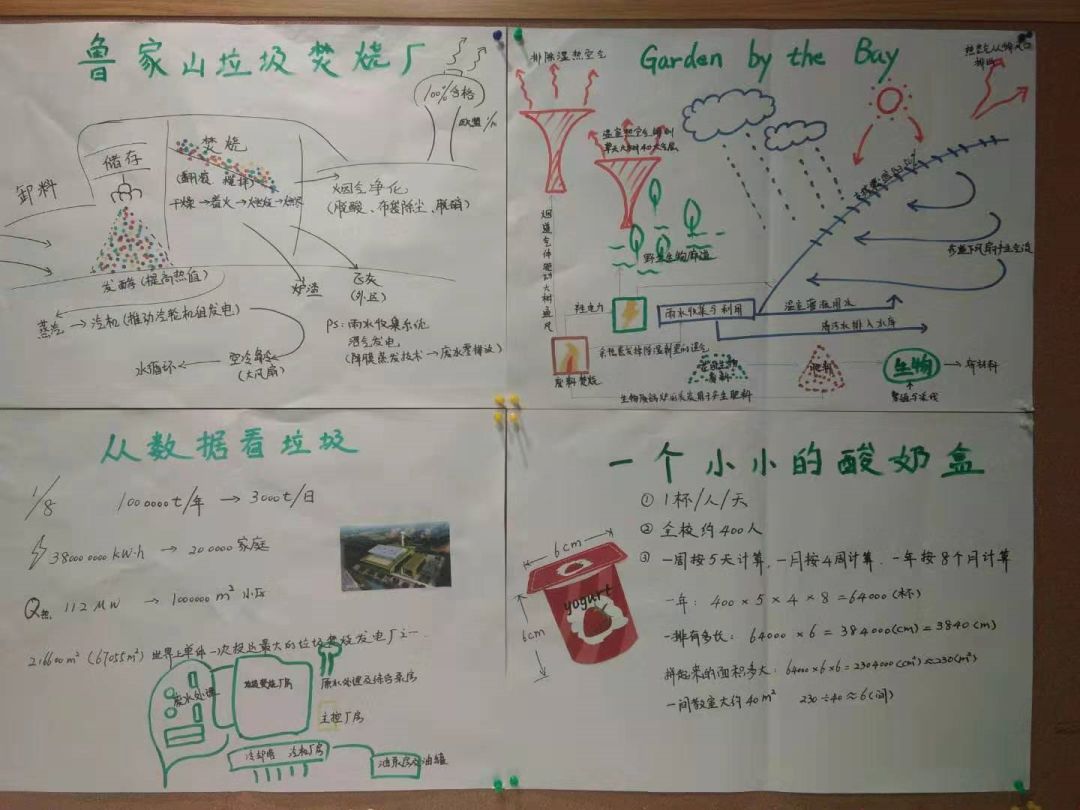 鲁家山垃圾焚烧厂
100%合格
欧盟
卸料
储存
焚烧
(翻滚 搅拌)
干燥→着火→燃烧→燃尽
烟气净化
(脱酸、布袋除尘、脱硝)
发酵(提高热值)
炉渣
飞灰
(外运)
蒸汽→汽机(推动汽轮机组发电)
水循环
空冷岛
(大风扇)
PS:雨水收集系统
沼气发电
(降膜蒸发技术→废水零排放)
Garden by the Bay
排除湿热空气
排出
烟道气体驱动大树通风
野生生物廊道
电力
雨水收集与利用
温室灌溉用水
清污水排入水库
废料焚烧
肥料
生物
从数据看垃圾
1/8
1000000t/年→3000t/日
38000 0000 kW·h→200000家庭
Q热 112MW→1000000m² 小区
216600m²(67055m²)世界上单体一次投运最大的垃圾焚烧发电厂之一
废水处理
垃圾焚烧厂房
原水处理及综合泵房
主控厂房
冷却塔 汽机厂房
油泵房及油罐
一个小小的酸奶盒
① 1杯/人/天
② 全校约400人
③ 一周按5天计算,一月按4周计算,一年按8个月计算
6cm
6cm
yogurt
一年:400×5×4×8=64000(杯)
一排有多长:64000×6=384000(cm)=3840(m)
拼起来的面积多大:64000×6×6=2304000(cm²)≈230(m²)
一间教室大约40m² 230÷40≈6(间)